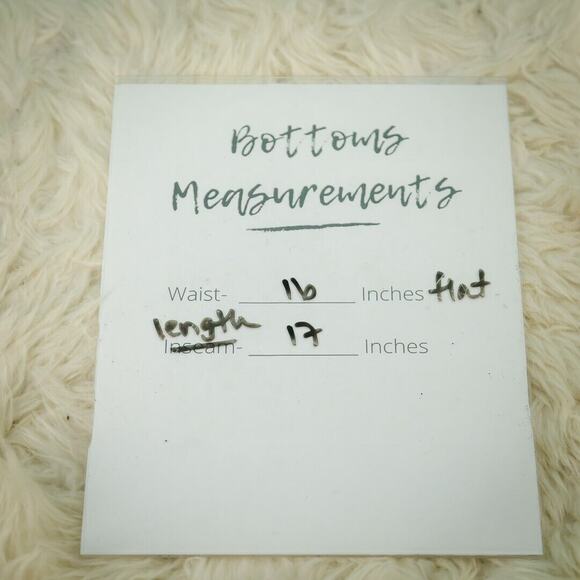 Bottoms
Measurements
Waist- 16 Inches flat
length
Inseam- 17 Inches